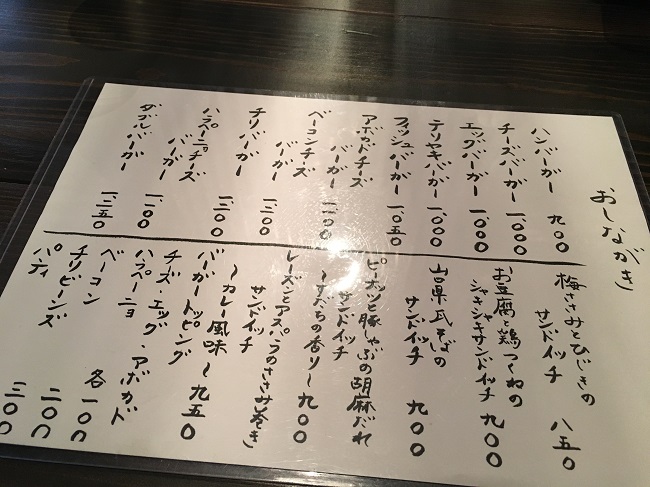 おしながき
ハンバーガー 九〇〇
チーズバーガー 一、〇〇〇
エッグバーガー 一、〇〇〇
テリヤキバーガー 一、〇〇〇
フィッシュバーガー 一、〇五〇
アボカドチーズ
バーガー 一、一〇〇
ベーコンチーズ
バーガー
チリバーガー 一、二〇〇
ハラペーニョチーズ
バーガー 一、二〇〇
ダブルバーガー 一、三五〇
梅ささみとひじきの
サンドイッチ 八五〇
お豆腐と鶏つくねの
シャキシャキサンドイッチ 九〇〇
山口県瓦そばの
サンドイッチ 九〇〇
ピーナッツと豚しゃぶの胡麻だれ
サンドイッチ
〜すだちの香り〜 九〇〇
レーズンとアスパラのささみ巻き
サンドイッチ
〜カレー風味〜 九五〇
バーガートッピング
チーズ・エッグ・アボカド
ハラペーニョ
ベーコン 各一〇〇
チリビーンズ 二〇〇
パティ 三〇〇